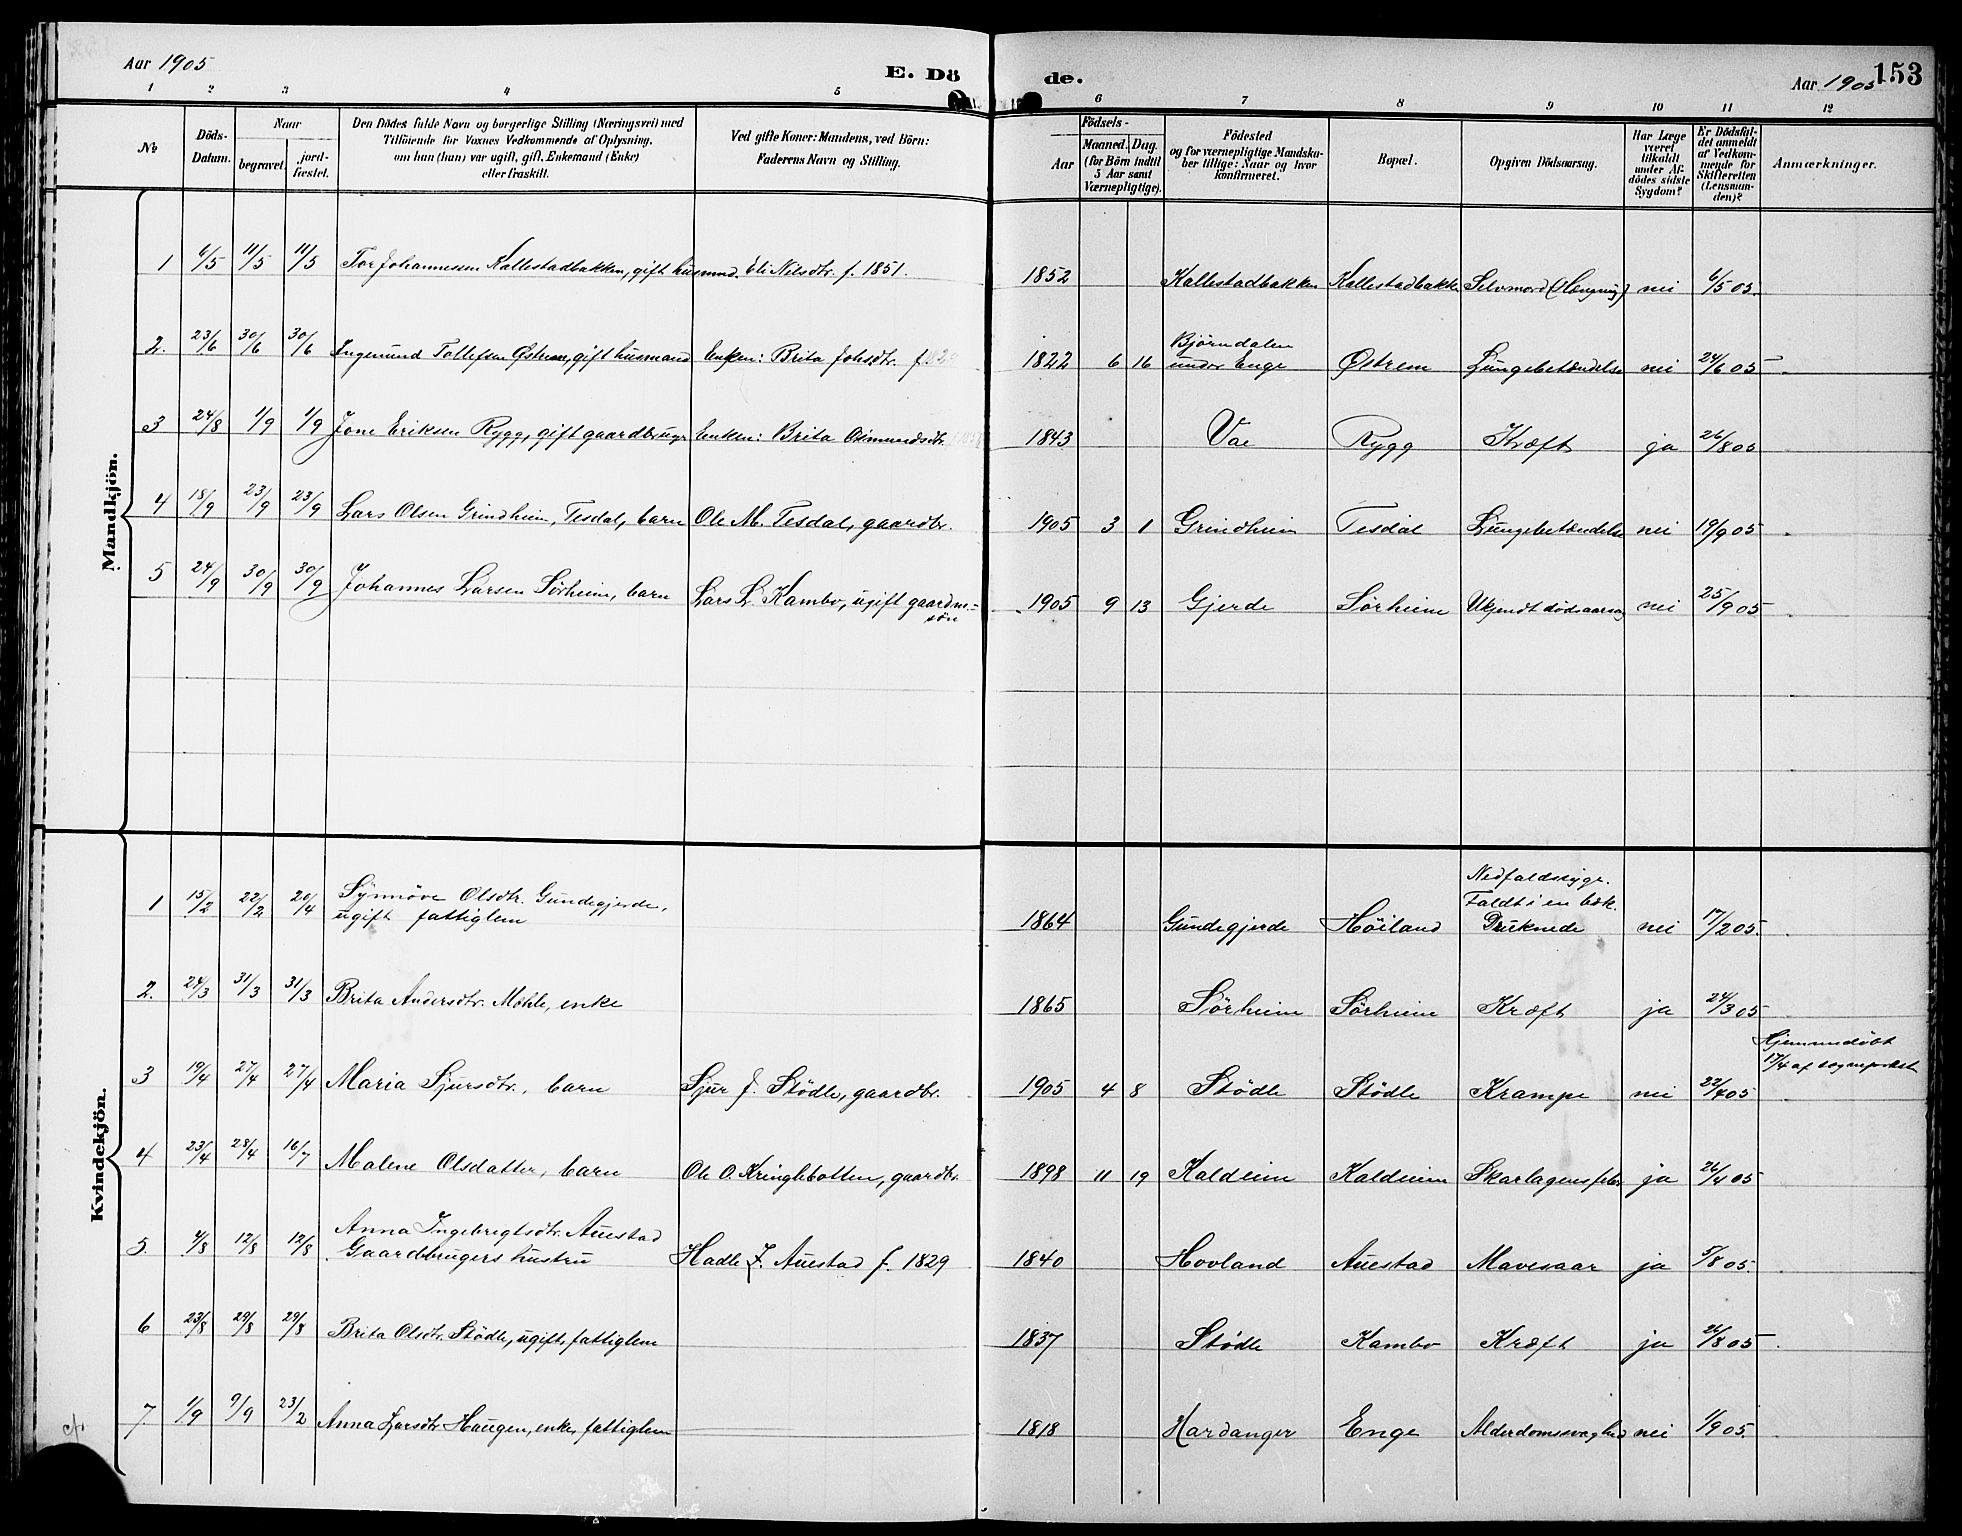 Aar 1905
E. Dö
de.
Aar 1905
153
1 2 3 4 5 6 7 8 9 10 11 12
№
Döds-
Datum.
Naar
begravet.
jord-
fæstet.
Den Dödes fulde Navn og borgerlige Stilling (Næringsvei) med
Tilföiende for Voxnes Vedkommende af Oplysning,
om han (hun) var ugift, gift, Enkemand (Enke)
eller fraskilt.
Ved gifte Koner: Mandens, ved Börn:
Faderens Navn og Stilling.
Födsels-
Aar
Maaned. Dag.
(for Börn indtil
5 Aar samt
Værnepligtige).
Födested
og for værnepligtige Mandska-
ber tillige: Naar og hvor
konfirmeret.
Bopæl.
Opgiven Dödsaarsag.
Har Læge
været
tilkaldt
under Af-
dödes sidste
Sygdom?
Er Dödsfal-
det anmeldt
af Vedkom-
mende for
Skifteretten
(Lensman-
den)?
Anmærkninger.
Mandkjön.
1 6/5 11/5 11/5 Tor Johannesen Kallestadbakken, gift husmnd. Eli Nilsdtr. f. 1851. 1852 Kallestadbakken Kallestadbakke Selvmord (Hængning) nei 6/5 05.
2. 23/6 30/6 30/6 Ingemund Tollefsen Østrem, gift husmand Enken: Brita Johsdtr. f. 1822 6 16 Bjørndalen
under Enge Østrem Lungebetændelse nei 24/6 05
3 24/8 1/9 1/9 Jone Eriksen Rygg, gift gaardbruger Enken: Brita Osmundsdtr. 1843 Vae Rygg Kræft ja 26/8 05
4 18/9 23/9 23/9 Lars Olsen Grindheim, Tesdal, barn Ole M. Tesdal, gaardbr. 1905 3 1 Grindheim Tesdal Lungebetændelse nei 19/9 05
5 24/9 30/9 30/9 Johannes Larsen Sørheim, barn Lars L. Kambo, ugift gaardm-
søn 1905 9 13 Gjerde Sørheim Ukjendt dødsaarsag nei 25/9 05
Kvindekjön.
1 15/2 22/2 20/4 Synnöve Olsdtr. Gundegjerde,
ugift fattiglem 1864 Gundegjerde Høiland Nedfaldssyge.
Faldt i en bæk.
Druknede nei 17/2 05.
2. 24/3 31/3 31/3 Brita Andersdtr. Mæhle, enke 1865 Sørheim Sørheim Kræft ja 24/3 05
3 19/4 27/4 27/4 Maria Sjursdtr., barn Sjur J. Stødle, gaardbr. 1905 4 8 Stødle Stødle Krampe nei 22/4 05 Hjemmedøbt
17/4 af sogneprest
4 23/4 28/4 16/7 Malene Olsdatter, barn Ole O. Kringlebotten, gaardbr. 1898 11 19 Kaldeim Kaldeim Skarlagensfeber ja 26/4 05
5. 4/8 12/8 12/8 Anna Ingebrigtsdtr. Auestad
Gaardbrugers hustru Hadle J. Auestad f. 1829 1840 Hovland Auestad Mavesaar ja 5/8 05.
6 23/8 29/8 29/8 Brita Olsdtr. Stødle, ugift, fattiglem 1837 Stødle Kambo Kræft ja 24/8 05
7 1/9 9/9 23/2 Anna Larsdtr Haugen, enke, fattiglem 1818 Hardanger Enge Alderdomssvaghed nei 1/9 05.